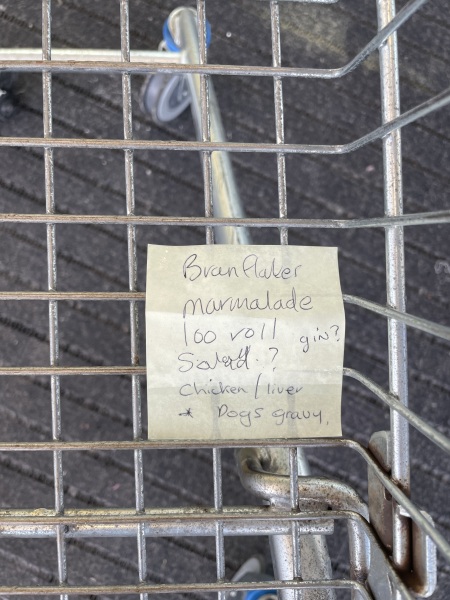 Bran flakes
marmalade
loo roll
gin?
Salad ?
Chicken / liver
* Dogs gravy,